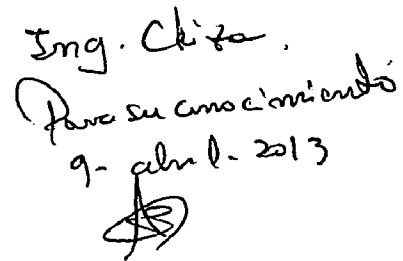 Ing. Chiza.
Para su conocimiento
9- abril- 2013